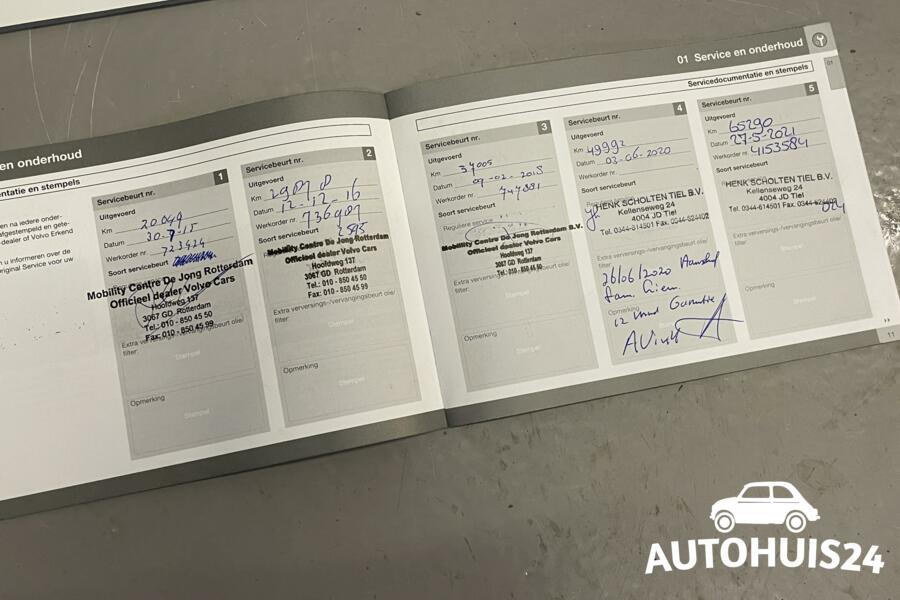 en onderhoud
entatie en stempels
en na iedere onder-
afgestempeld en gete-
dealer of Volvo Erkend
n u informeren over de
riginal Service voor uw
Servicebeurt nr. 1
Uitgevoerd
Km 20.049
Datum
Werkorder nr. 723424
Soort servicebeurt
Mobility Centre De Jong Rotterdam
Officieel dealer Volvo Cars
Hoofdweg 137
3067 GD Rotterdam
Tel.: 010 - 850 45 50
Fax: 010 - 850 45 99
Extra verversings-/vervangingsbeurt olie/
filter:
Stempel
Opmerking
Stempel
Servicebeurt nr. 2
Uitgevoerd
Km
Datum 12-12-16
Werkorder nr. 736907
Soort servicebeurt
Mobility Centre De Jong Rotterdam
Officieel dealer Volvo Cars
Hoofdweg 137
3067 GD Rotterdam
Tel.: 010 - 850 45 50
Fax: 010 - 850 45 99
Extra verversings-/vervangingsbeurt olie/
filter:
Stempel
Opmerking
Stempel
01 Service en onderhoud
Servicedocumentatie en stempels
01
Servicebeurt nr. 3
Uitgevoerd
Km 37005
Datum 09-02-2018
Werkorder nr.
Soort servicebeurt
Reguliere service
Mobility Centre De Jong Rotterdam B.V.
Officieel dealer Volvo Cars
Hoofdweg 137
3067 GD Rotterdam
Tel.: 010 - 850 45 50
Extra verversings-/vervangingsbeurt olie/
filter:
Stempel
Opmerking
Stempel
Servicebeurt nr. 4
Uitgevoerd
Km 49992
Datum 03-06-2020
Werkorder nr.
Soort servicebeurt
HENK SCHOLTEN TIEL B.V.
Kellenseweg 24
4004 JD Tiel
Tel. 0344-614501 Fax. 0344-624402
Extra verversings-/vervangingsbeurt olie/
filter:
26/06/2020
Opmerking
12 mnd Garantie
Servicebeurt nr. 5
Uitgevoerd
Km 65290
Datum 27-5-2021
Werkorder nr. 4153584
Soort servicebeurt
HENK SCHOLTEN TIEL B.V.
Kellenseweg 24
4004 JD Tiel
Tel. 0344-614501 Fax. 0344-624402
Extra verversings-/vervangingsbeurt olie/
filter:
Stempel
Opmerking
Stempel
11
AUTOHUIS24